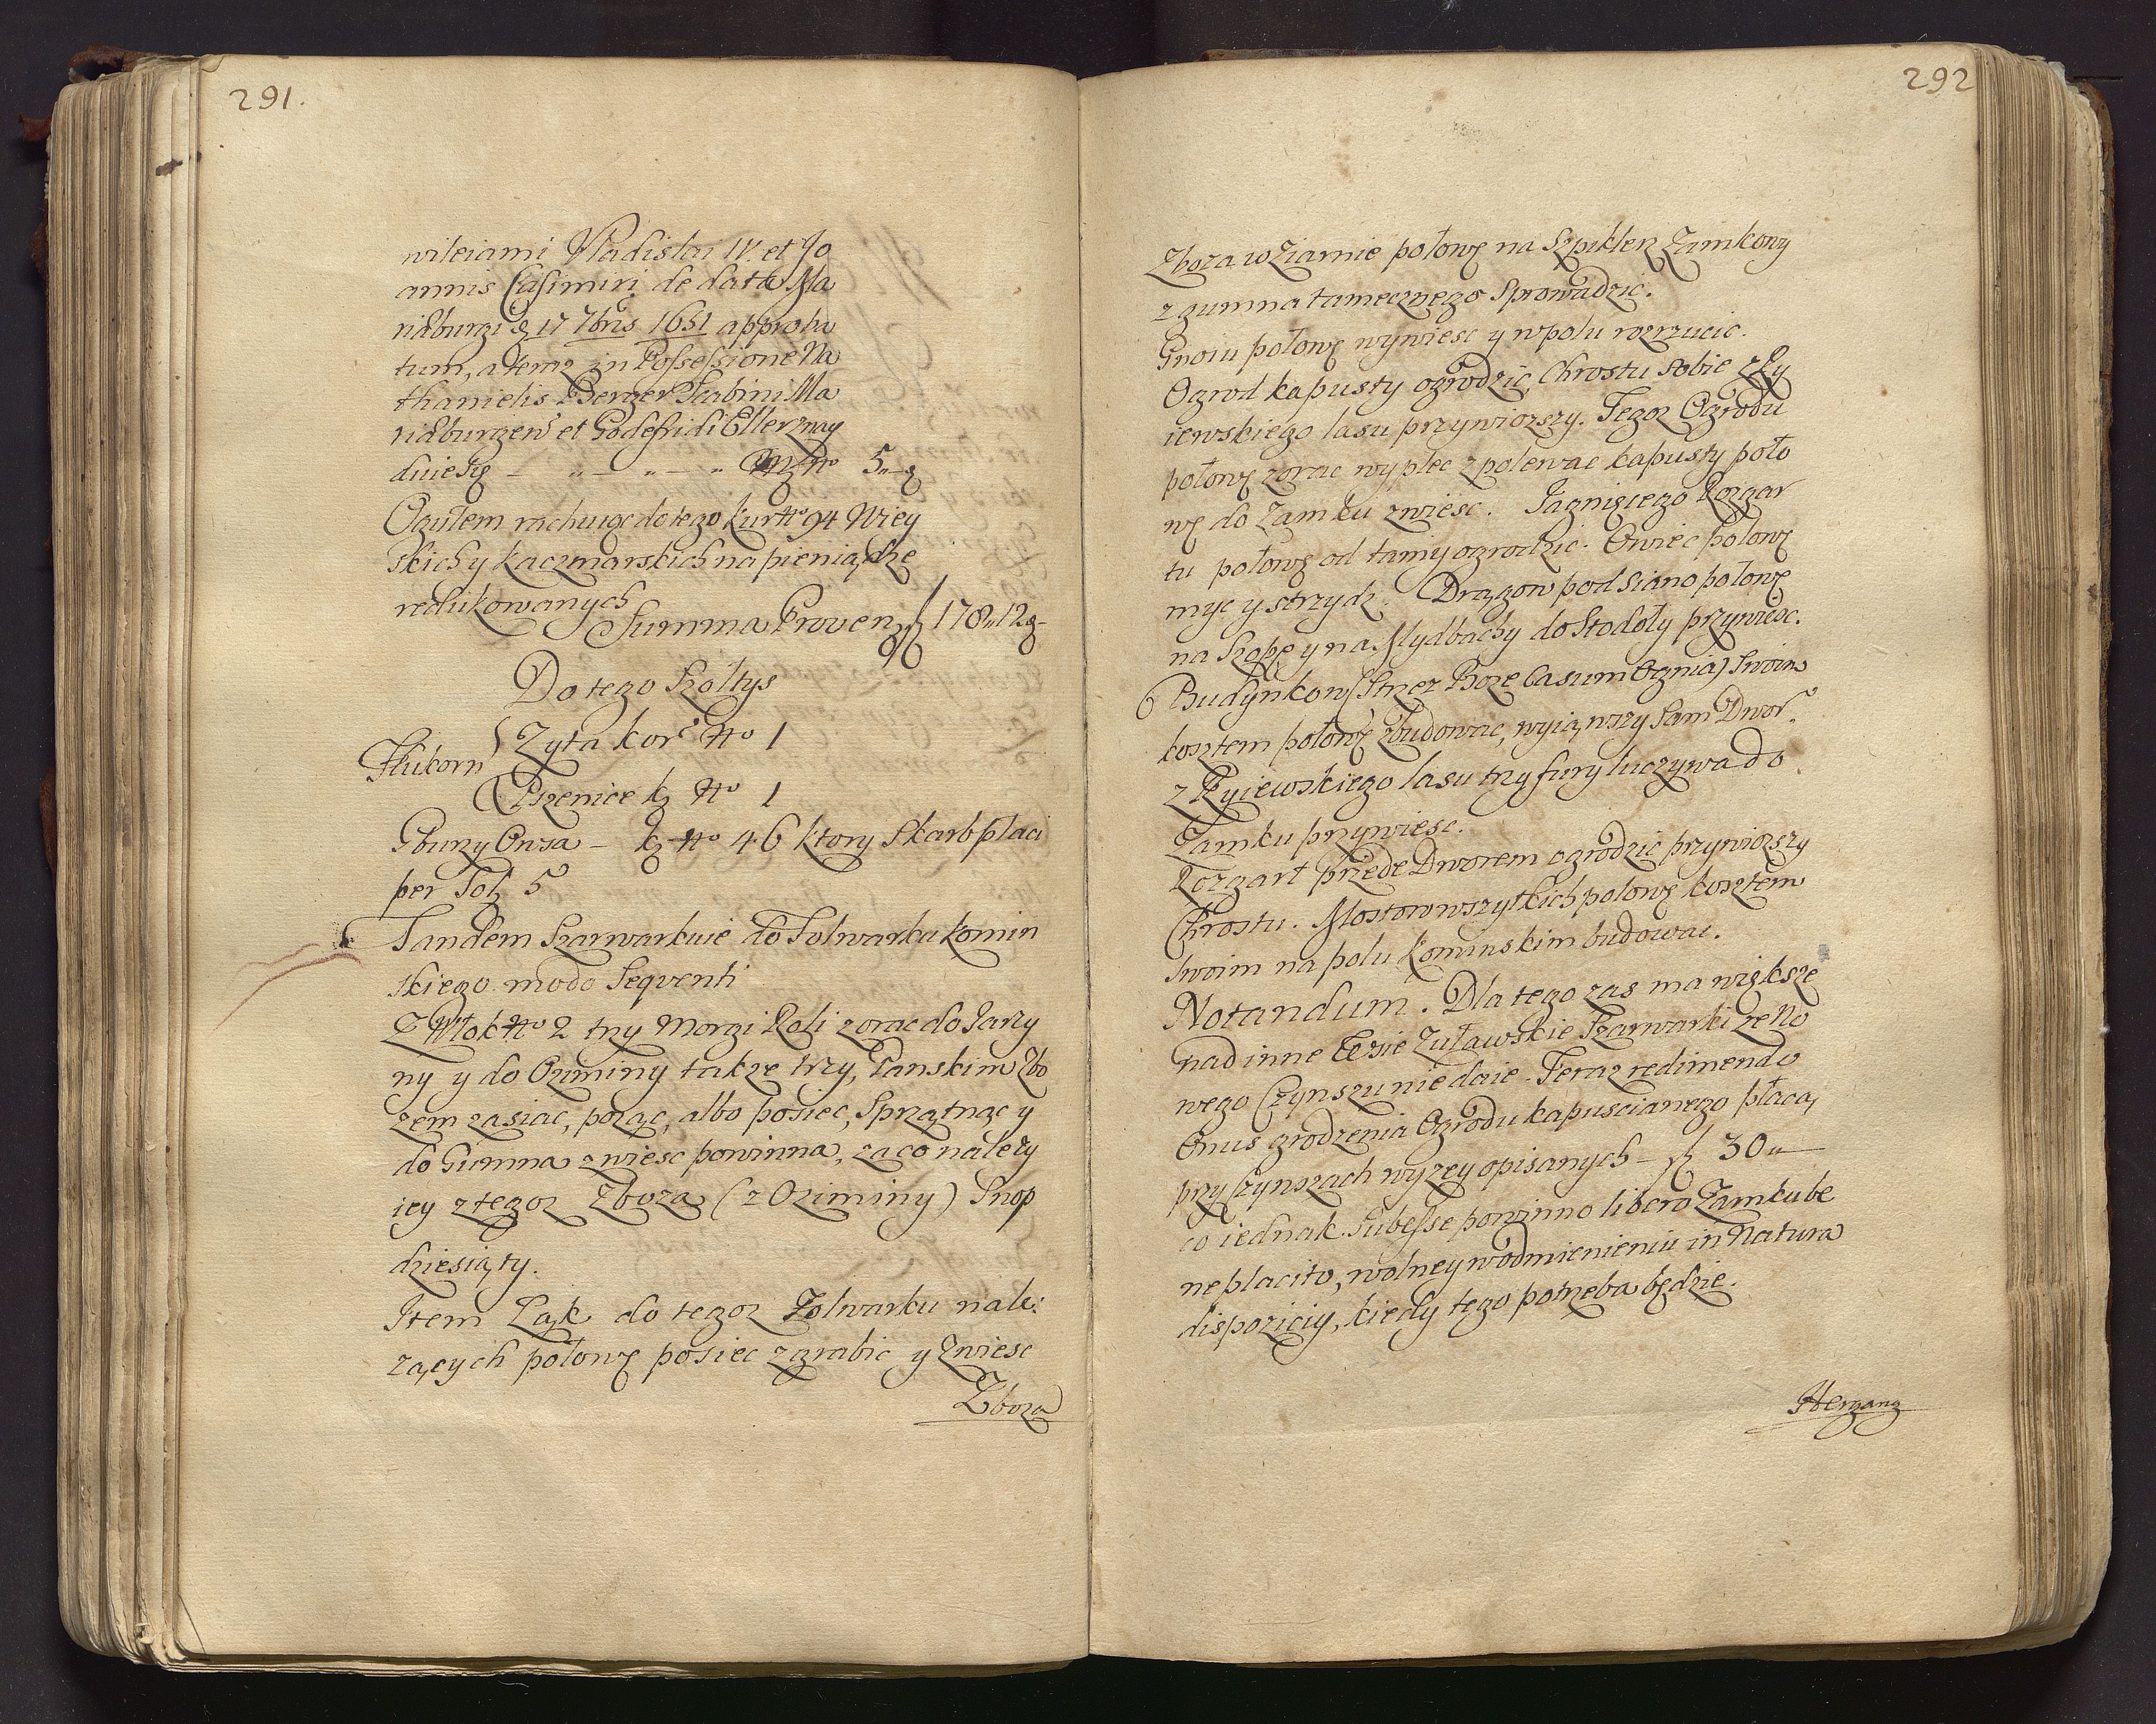 291.
wileiami Vladislai IV. et Jo
annis Casimiri de data Ma
rićburgi 17 7bris 1651 approba
tum, a teraz in Possessione Na
thanielis Berger Scabini Ma
rićburgen et Godefridi Ellerznay
duie Się — „ — „ — „ No 5
Ogułem rachuiąc do tego kur No 94 Wiey
skich y kaczmarskich na pieniądze
redukowanych
Summa Proven 178„12
Do tego Szołtys
Zyta kor No 1
Flukorn
Pszenice k No 1
Gbury Owsa – k No 46 ktory Skarb płaci
per 5
Tandem Szarwarkuie do Folwarku Komin
skiego modo Seqventi
Z Włok No 2 trzy Morgi Roli zorac do Jarzy
ny y do Oziminy takze trzy, Panskim Zbo
zem zasiac, poząc, albo posiec, Sprzątnąc y
do Gumna zwiesc powinna, za co nalezy
iey z tegoz Zboza (z Oziminy) Snop
dziesiąty.
Item Ląk do tegoz Folwarku nale:
zących połowę posiec zgrabic y Zwiesc
Zboza
292
Zboza w Ziarnie połowę na Szpiklerz Zamkowy
z gumna tamecznego Sprowadzic.
Gnoiu połowę wywiesc y w polu rozrzucic.
Ogrod kapusty ogrodzic, Chrostu sobie z Ry
iewskiego lasu przywiozszy. Tegoz Ogrodu
połowę zorac wyplec z polewac kapusty poło
wę do Zamku zwiesc. Jagnięcego Rozgar
tu połowę od tamy ogrodzic. Owiec połowę
myc y strzydz. Drągow pod siano połowę
na Szopę y na Mydbachy do Stodoły przywiesc.
Budynkow (Strzez Boze Casum Ognia) Swoim
kosztem połowę zbudowac, wyiąwszy Sam Dwor.
z Ryiewskiego lasu trzy fury łuczywa do
Zamku przywiesc.
Rozgart przede Dworem ogrodzic przywiozszy
Chrostu. Mostow wszytkich polowę kosztem
swoim na polu Kominskim budowac.
Notandum. Dla tego zas ma większe
nad inne Wsie Zuławskie Szarwarki ze No
wego Czynszu nie daie. Teraz redimendo
Onus grodzenia Ogrodu kapuscianego płacą
przy czynszach wyzey opisanych – 30„—
co iednak Subesse powinno libero Zamku be
neplacito, wolney w odmienieniu in Natura
dispoziciy, kiedy tego potrzeba będzie.
Hergang